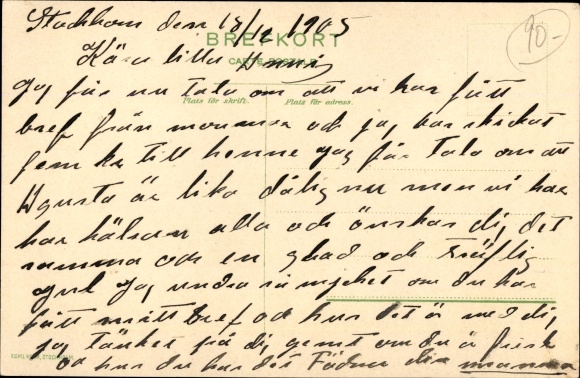 Stockholm den 15/12 1905
90-
BREFKORT
Kära lilla Anna
Jag får nu tala om att vi har fått
Plats för skrift. Plats för adress.
bref från mamma och jag har skickat
fem kr till henne jag får tala om att
Agusta är lika dålig nu men vi har
har hälsan alla och önskar dig det
samma och en glad och
jul Jag undra så mycket om du har
fått mitt bref och hur det är med dig
jag tänker på dig jemt om du är frisk
och hur du har det din mamma